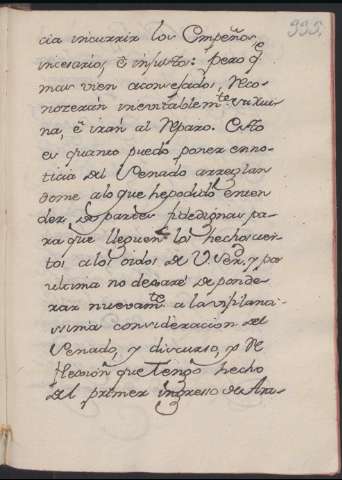 995.
cia incurrir los Empeños
incesarios, é injustos: pero q.e
mas vien aconsejados, Reco-
nozerán inevitablem.te su Rui-
na, é irán al Reparo. Esto
es quanto puedo poner en no-
ticia del Senado arreglan
dome a lo que he podido enten
der, de partes fidedignas pa-
ra que lleguen los hechos cier-
tos a los oidos de V. Sen.d, y por
ultima no dejaré de ponde-
rar nuevam.te a la vijilanci-
ssima consideracion del
Senado, y discurso, y Re-
flecsión que tengo hecho
del primer ingresso de Ara-